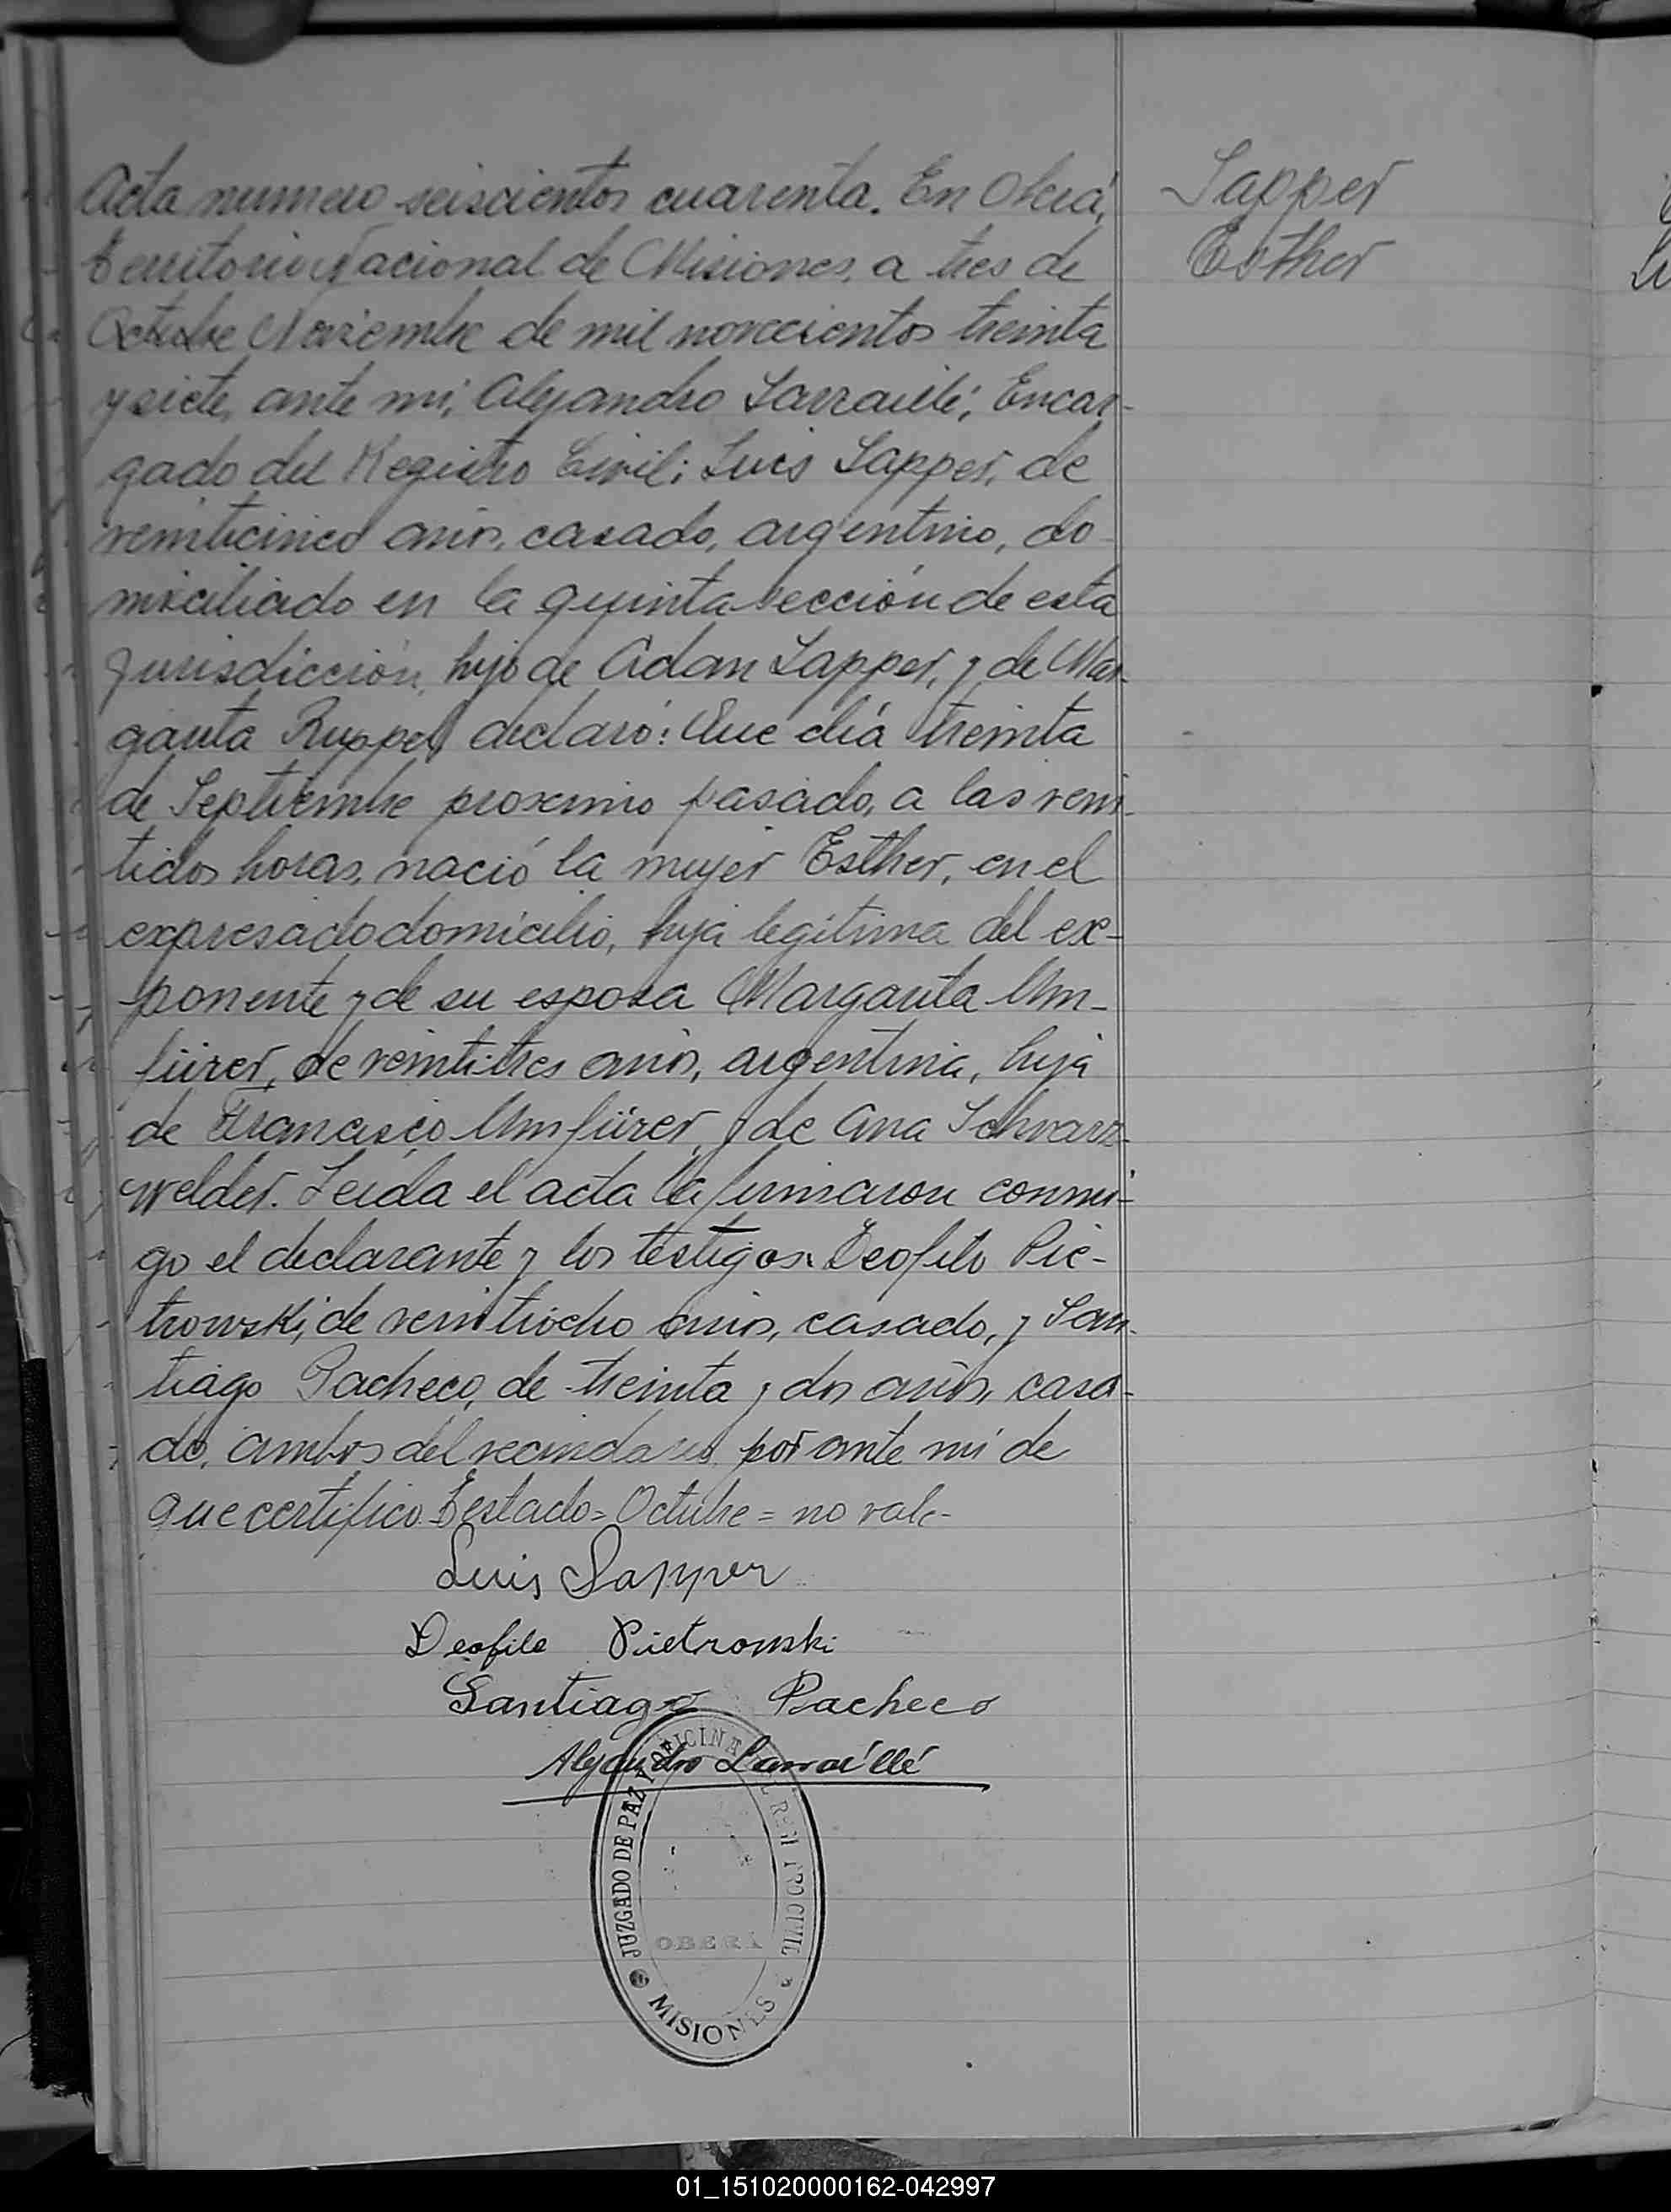 Acta numero seiscientos cuarenta. En Oberá,
territorio Nacional de Misiones, a tres de
Octubre Noviembre de mil novecientos treinta
y siete, ante mi, Alejandro Larraillé, Encar-
gado del Registro Civil: Luis Sapper, de
veinticinco años, casado, argentino, do-
miciliado en la quinta sección de esta
jurisdicción, hijo de Adan Sapper, y de Mar-
garita Ruppel, declaró: Que día treinta
de Septiembre proximo pasado, a las vein-
tidos horas, nació la mujer Esther, en el
expresado domicilio, hija legítima del ex-
ponente y de su esposa Margarita Um-
fürer, de veintitres años, argentina, hija
de Francisco Umfürer, y de Ana Schwarz-
welder. Leida el acta la firmaron conmi-
go el declarante y los testigos: Deofilo Pie-
trowski, de veintiocho años, casado, y San-
tiago Pacheco, de treinta y dos años, casa-
do, ambos del vecindario por ante mi de
que certifico. Testado = Octubre = no vale-
Luis Sapper
Deofilo Pietrowski
Santiago Pacheco
Alejandro Larraillé
JUZGADO DE PAZ Y OFICINA DEL REGISTRO CIVIL
OBERÁ
MISIONES
Sapper
Esther
01_151020000162-042997